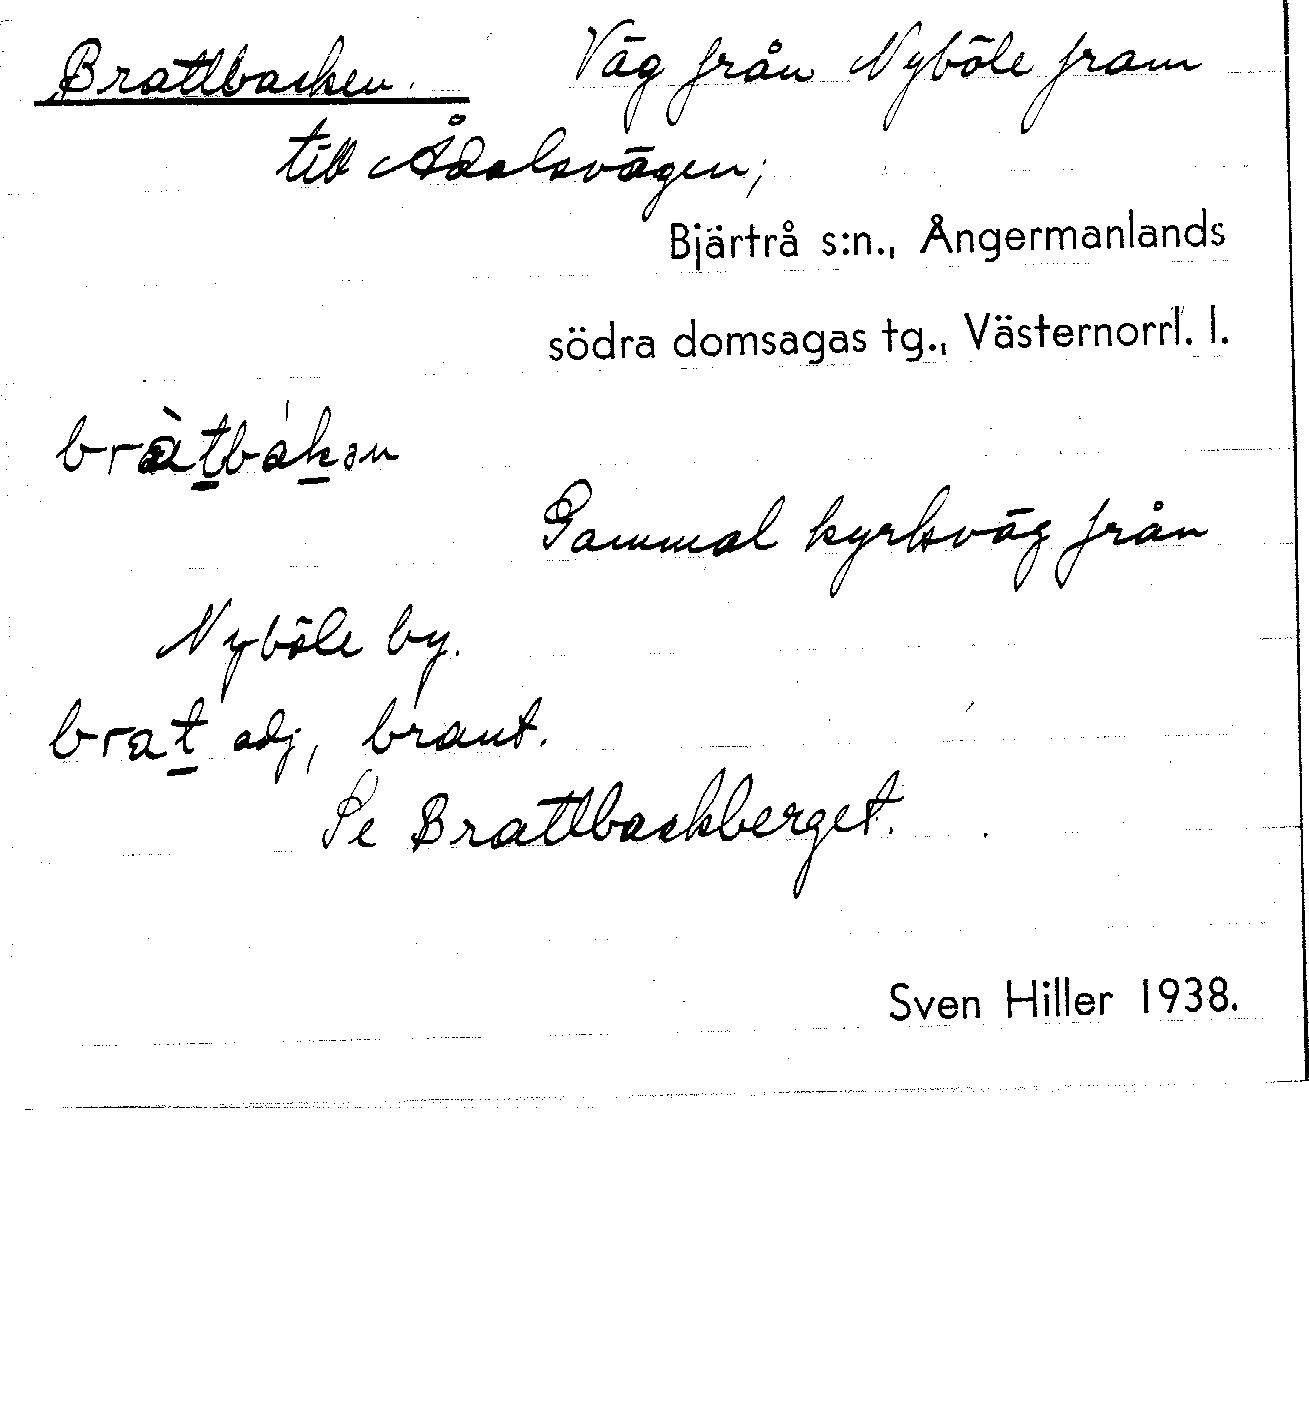 Brattbacken. Väg från Nyböle fram
till Ådalsvägen;
Bjärtrå s:n., Ångermanlands
södra domsagas tg., Västernorrl. l.
bràt̲bák̲ən
Gammal kyrkväg från
Nyböle by.
brat̲ adj, brant.
Se Brattbackberget.
Sven Hiller 1938.